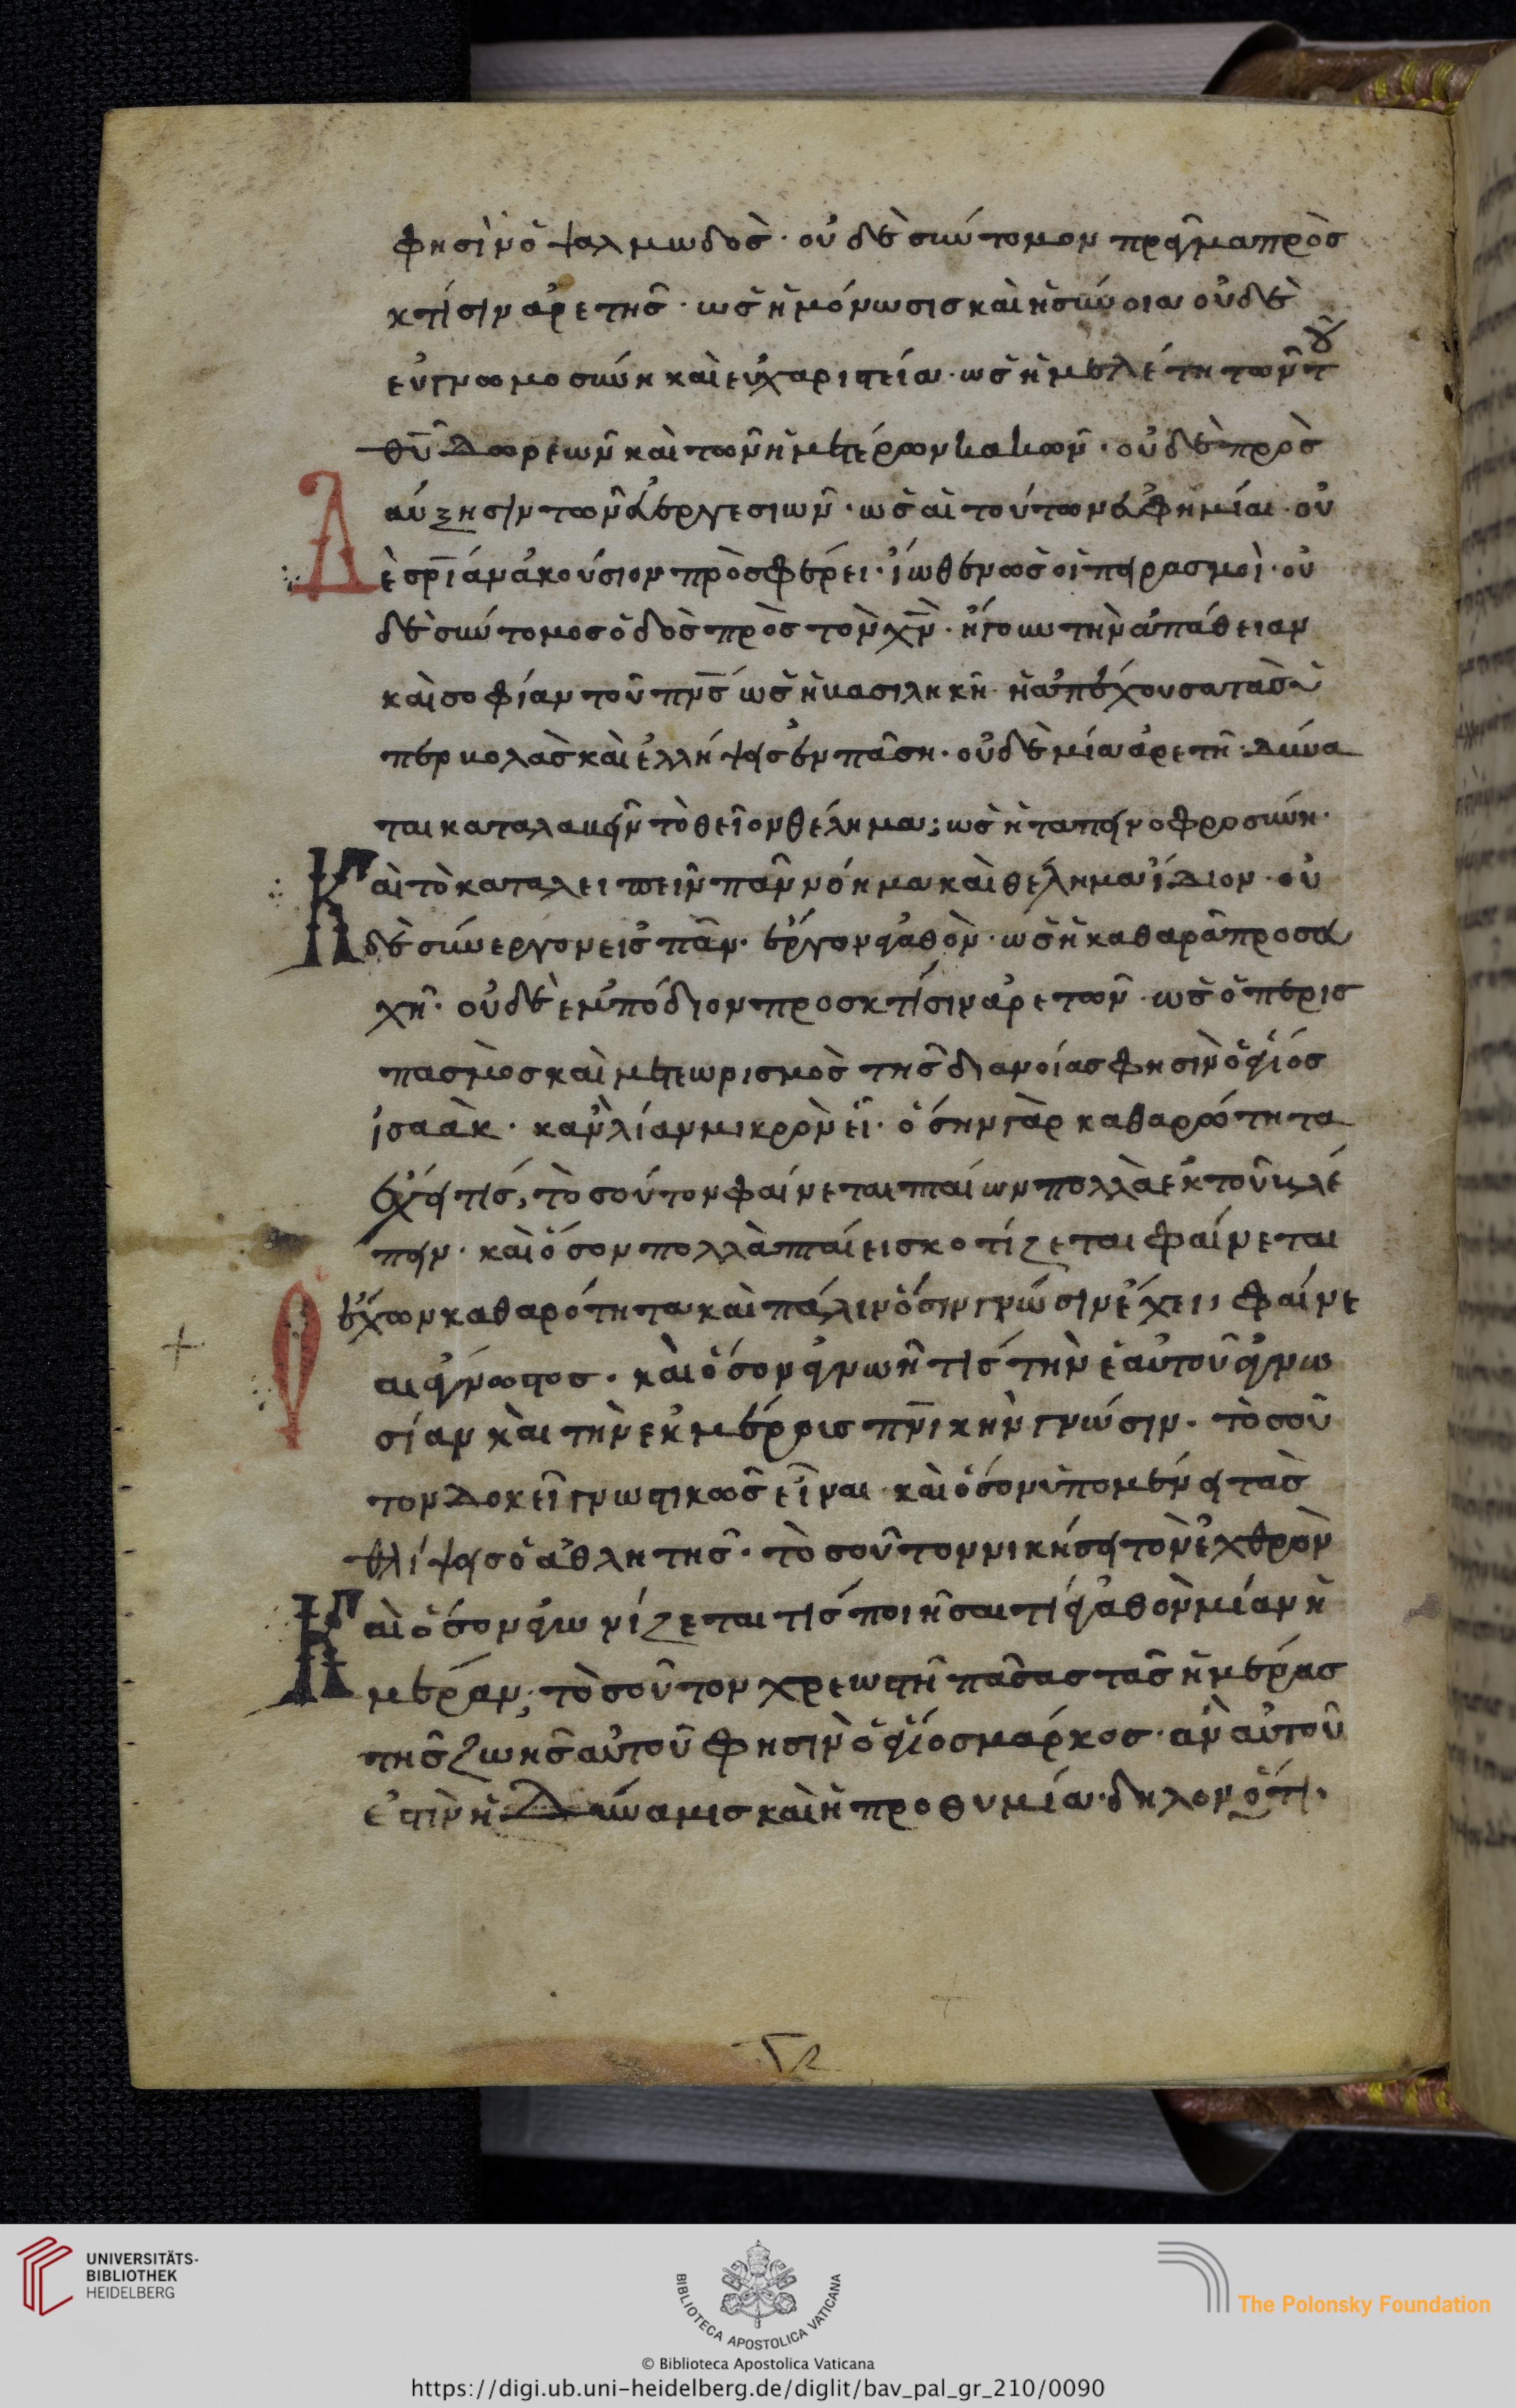 φησὶν ὁ ψαλμωδὸς· οὐδὲ σύντομον πρᾶγμα πρὸς
κτίσιν ἀρετῆς· ὡς ἡ μόνωσις καὶ ἡ σύνοια οὐδὲ
εὐγνωμοσύνη καὶ εὐχαριστεία· ὡς ἡ μελέτη τῶν τοῦ
θῦ δωρεῶν καὶ τῶν ἡμετέρων κακῶν· οὐδὲ πρὸς
αύξησιν τῶν εὐεργεσιῶν· ὡς αἱ τούτων εὐφημίαι· οὐ
Δὲ σρίαν ἀκούσιον πρὸσφέρει· ἰώθεν ὡς οἱ πειρασμοὶ· οὐ
δὲ σύντομος ὁδὸς πρὸς τὸν χν· ἤγουν τὴν ἀπάθειαν
καὶ σοφίαν τοῦ πνς ὡς ἡ βασιληκὴ ἡ ἀπέχουσα τὰς ὑ
περβολὰς καὶ ἐλλήψεις ἐν πᾶση· οὐδὲ μία ἀρετὴ· δύνα
ται καταλαβεῖν τὸ θεῖον θέλημα; ὡς ἡ ταπεινοφροσύνη·
Καὶ τὸ καταλειπεῖν πᾶν νόημα καὶ θέλημα ἴδιον· οὐ
δὲ σύνεργον εἰς πᾶν· ἔργον ἀγαθὸν· ὡς ἡ καθαρὰ προσευ
χὴ· οὐδὲ ἐμπόδιον προς κτίσιν ἀρετῶν· ὡς ὁ περισ
πασμὸς καὶ μετεωρισμὸς τῆς διανοίας φησὶν ὁ ἅγιός
ἰσαὰκ· κἀν λίαν μικρὸν εἶ· ὅσην γὰρ καθαρότητα
ἔχει τίς, τὸσούτον φαίνεται πταίων πολλὰ ἐκ τοῦ βλέ
πειν· καὶ ὅσον πολλὰ πταίει σκοτίζεται φαίνεται
ἔχων καθαρότητα καὶ πάλιν ὅσιν γνώσιν ἔχει, φαίνε
αι ἄγνωστος· καὶ ὅσον ἀγνωῆ τίς τὴν ἑαυτοῦ ἀγνω
σίαν καὶ τὴν ἐκ μέρρις πνικὴν γνώσιν· τὸσοῦ
τον δοκεῖ γνωστικῶς εἶναι καὶ ὅσον ὑπομένει τὰς
θλίψεις ὁ ἀθλητὴς· τὸσοῦτον νικήσει τὸν ἐχθρὸν
Καὶ ὅσον ἀγωνίζεται τίς ποιῆσαι τί ἀγαθὸν μίαν ἡ
μέραν, τὸσοῦτον χρεωστῆ πᾶσας τὰς ἡμέρας
τῆς ζωῆς αὐτοῦ φησὶν ὁ ἅγιος μαρκος· ἀν αὐτοῦ
ἐστὶν ἡ δύναμις καὶ ἡ προθυμία· δηλονότι·
UNIVERSITÄTS-
BIBLIOTHEK
HEIDELBERG
BIBLIOTECA APOSTOLICA VATICANA
The Polonsky Foundation
© Biblioteca Apostolica Vaticana
https://digi.ub.uni-heidelberg.de/diglit/bav_pal_gr_210/0090